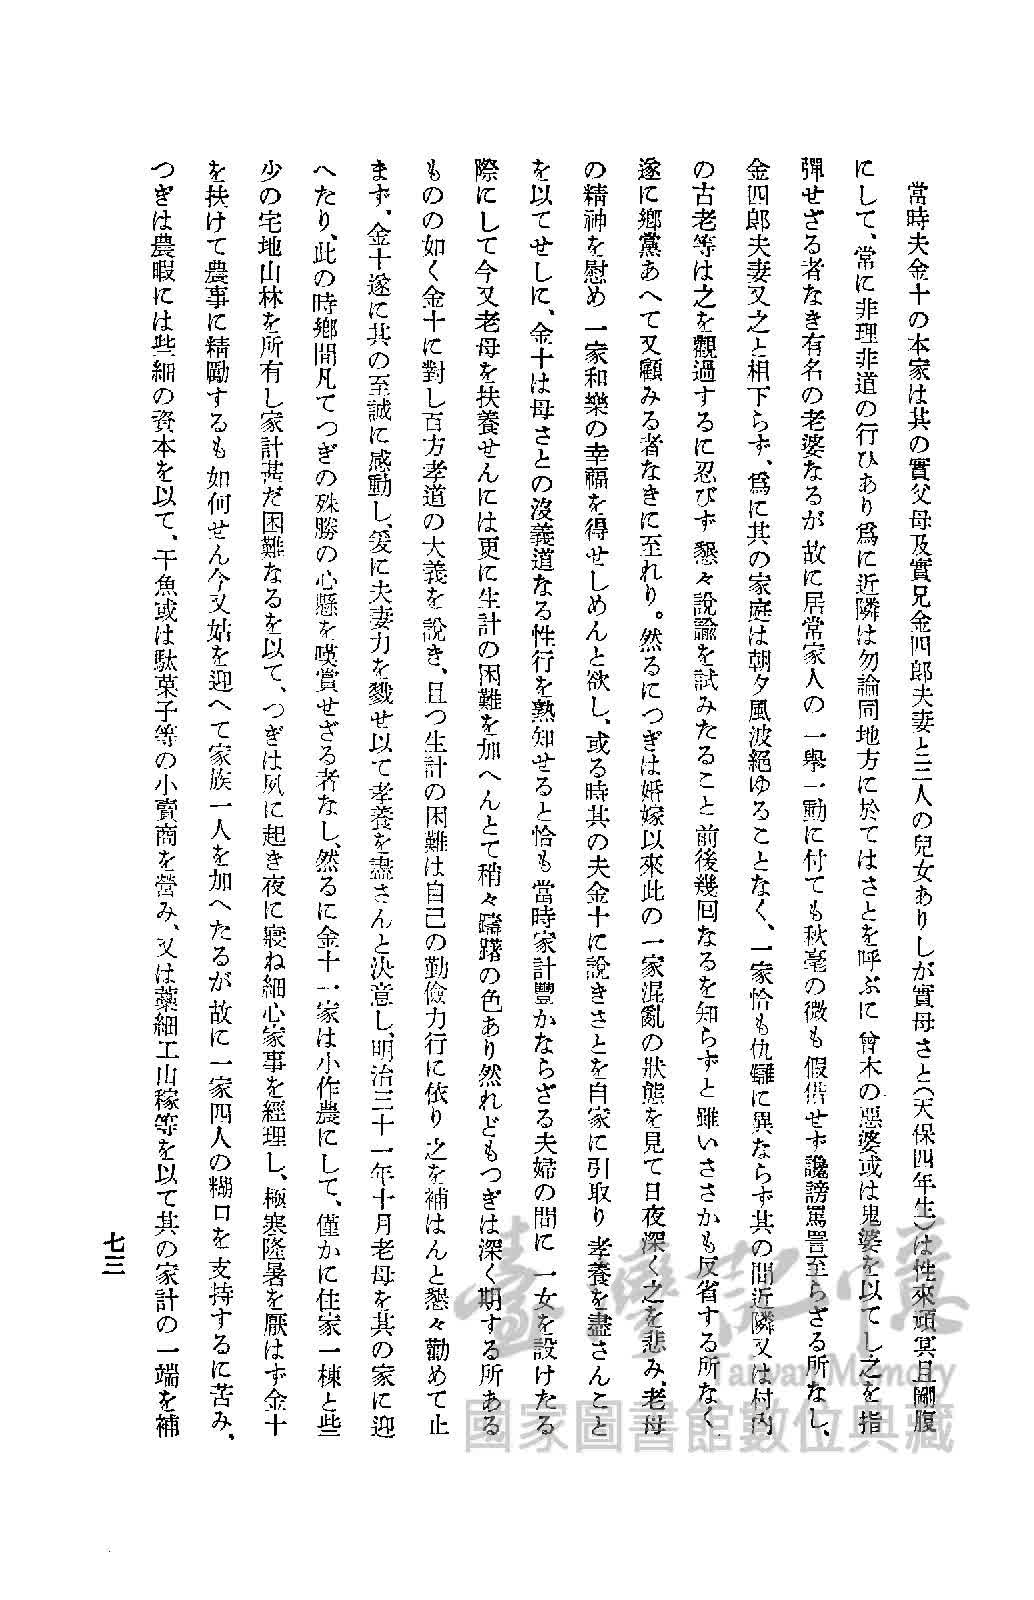 當時夫金十の本家は其の實父母及實兄金四郎夫妻と三人の兒女ありしが實母さと(天保四年生)は性來頑冥且剛腹
にして、常に非理非道の行ひあり爲に近隣は勿論同地方に於てはさとを呼ぶに曾木の惡婆或は鬼婆を以てし之を指
彈せざる者なき有名の老婆なるが故に居常家人の一擧一動に付ても秋毫の微も假借せず讒謗罵詈至らざる所なし、
金四郎夫妻又之と相下らず、爲に其の家庭は朝夕風波絕ゆることなく、一家恰も仇讎に異ならず其の間近隣又は村內
の古老等は之を觀過するに忍びず懇々說諭を試みたること前後幾回なるを知らずと雖いささかも反省する所なく
遂に鄕黨あへて又顧みる者なきに至れり。然るにつぎは婚嫁以來此の一家混亂の狀態を見て日夜深く之を悲み、老母
の精神を慰め一家和樂の幸福を得せしめんと欲し、或る時其の夫金十に說きさとを自家に引取り孝養を盡さんこと
を以てせしに、金十は母さとの沒義道なる性行を熟知せると恰も當時家計豐かならざる夫婦の間に一女を設けたる
際にして今又老母を扶養せんには更に生計の困難を加へんとて稍々躊躇の色あり然れどもつぎは深く期する所ある
ものの如く金十に對し百方孝道の大義を說き、且つ生計の困難は自己の勤儉力行に依り之を補はんと懇々勸めて止
まず、金十遂に其の至誠に感動し、爰に夫妻力を戮せ以て孝養を盡さんと決意し、明治三十一年十月老母を其の家に迎
へたり、此の時鄕閭凡てつぎの殊勝の心懸を嘆賞せざる者なし、然るに金十一家は小作農にして、僅かに住家一棟と些
少の宅地山林を所有し家計甚だ困難なるを以て、つぎは夙に起き夜に寢ね細心家事を經理し、極寒隆暑を厭はず金十
を扶けて農事に精勵するも如何せん今又姑を迎へて家族一人を加へたるが故に一家四人の糊口を支持するに苦み、
つぎは農暇には些細の資本を以て、干魚或は駄菓子等の小賣商を營み、又は藁細工山稼等を以て其の家計の一端を補
七三
臺灣記憶
Taiwan Memory
國家圖書館數位典藏